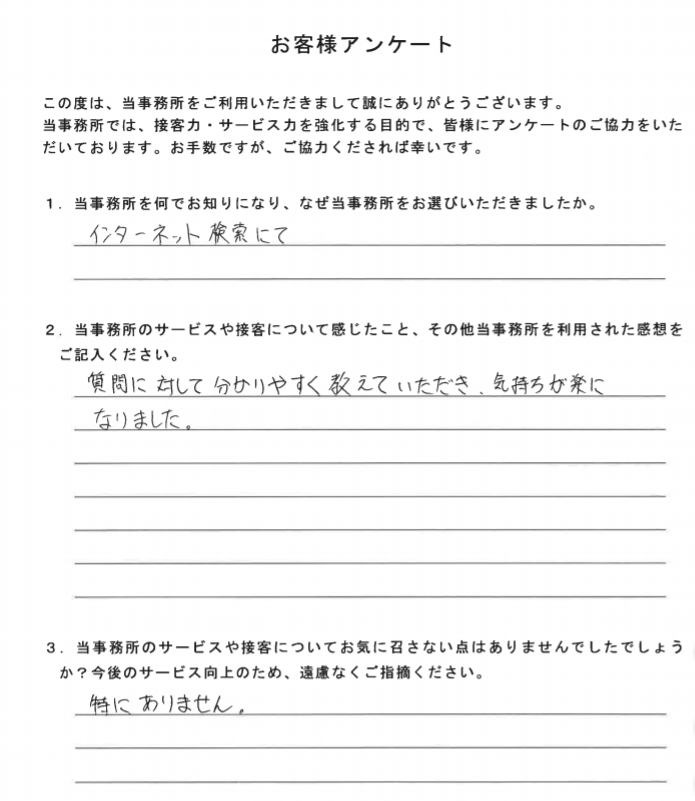 お客様アンケート
この度は、当事務所をご利用いただきまして誠にありがとうございます。
当事務所では、接客力・サービス力を強化する目的で、皆様にアンケートのご協力をいた
だいております。お手数ですが、ご協力くだされば幸いです。
1．当事務所を何でお知りになり、なぜ当事務所をお選びいただきましたか。
インターネット検索にて
2．当事務所のサービスや接客について感じたこと、その他当事務所を利用された感想を
ご記入ください。
質問に対して分かりやすく教えていただき、気持ちが楽に
なりました。
3．当事務所のサービスや接客についてお気に召さない点はありませんでしたでしょう
か？今後のサービス向上のため、遠慮なくご指摘ください。
特にありません。